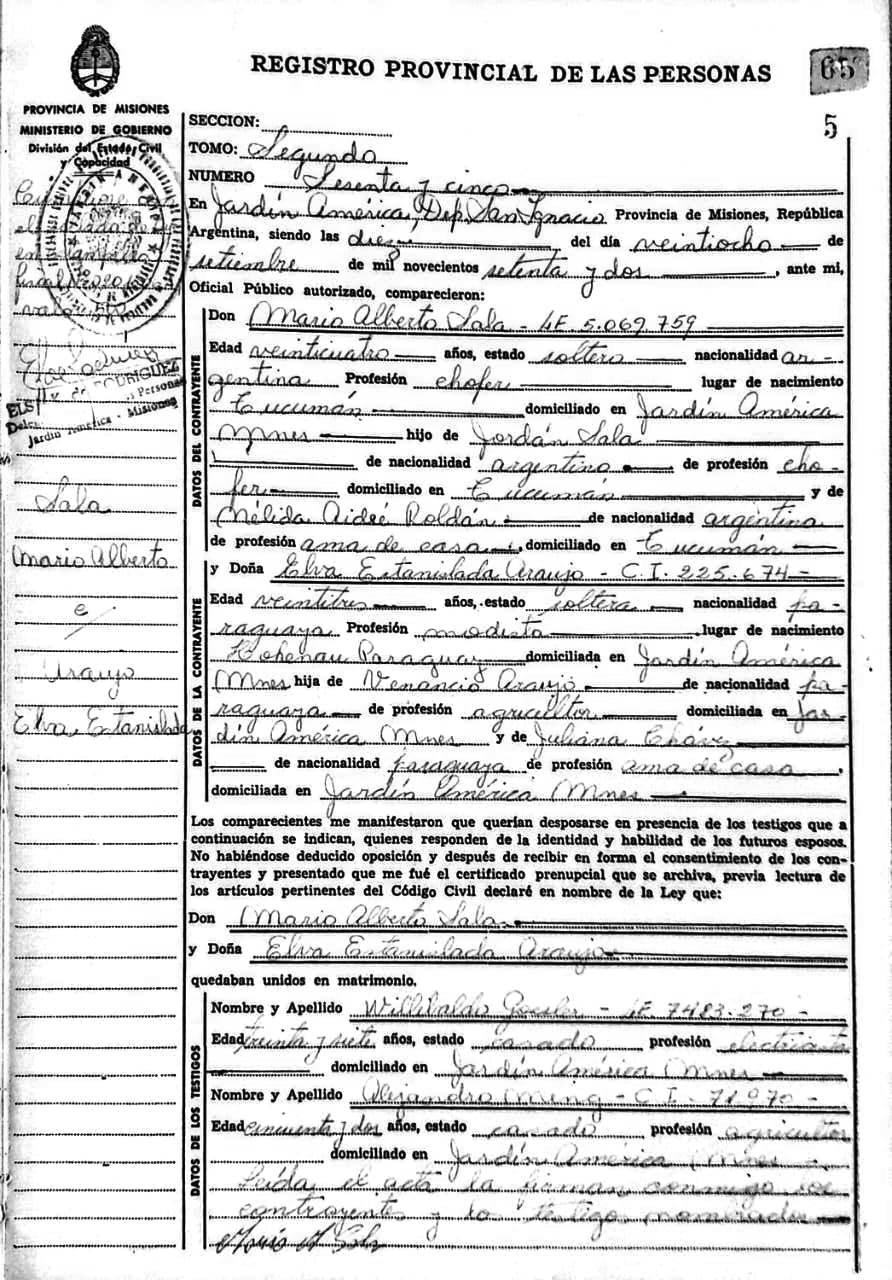 REGISTRO PROVINCIAL DE LAS PERSONAS
65
5
PROVINCIA DE MISIONES
MINISTERIO DE GOBIERNO
División del Estado Civil
y Capacidad
Sala
Mario Alberto
e/
Araujo
Elva Estanislada
SECCION:
TOMO: Segundo
NUMERO Sesenta y cinco
En Jardín América, Dep. San Ignacio Provincia de Misiones, República
Argentina, siendo las diez del día veintiocho de
setiembre de mil novecientos setenta y dos, ante mi,
Oficial Público autorizado, comparecieron:
DATOS DEL CONTRAYENTE
Don Mario Alberto Sala - LE 5.069.759
Edad veinticuatro años, estado soltero nacionalidad ar-
gentina Profesión chofer lugar de nacimiento
Tucumán domiciliado en Jardín América
Mnes hijo de Jordán Sala
de nacionalidad argentina de profesión cho-
fer domiciliado en Tucumán y de
Mélida Aideé Roldán de nacionalidad argentina
de profesión ama de casa, domiciliado en Tucumán
DATOS DE LA CONTRAYENTE
y Doña Elva Estanislada Araujo - C.I. 225.674
Edad veintitres años, estado soltera nacionalidad pa-
raguaya Profesión modista lugar de nacimiento
Hohenau Paraguay domiciliada en Jardín América
Mnes hija de Venancio Araujo de nacionalidad pa-
raguaya de profesión agricultor domiciliada en Jar-
dín América Mnes y de Juliana Chávez
de nacionalidad paraguaya de profesión ama de casa,
domiciliada en Jardín América Mnes
Los comparecientes me manifestaron que querían desposarse en presencia de los testigos que a
continuación se indican, quienes responden de la identidad y habilidad de los futuros esposos.
No habiéndose deducido oposición y después de recibir en forma el consentimiento de los con-
trayentes y presentado que me fué el certificado prenupcial que se archiva, previa lectura de
los artículos pertinentes del Código Civil declaré en nombre de la Ley que:
Don Mario Alberto Sala
y Doña Elva Estanislada Araujo
quedaban unidos en matrimonio.
DATOS DE LOS TESTIGOS
Nombre y Apellido Willibaldo Gessler - LE 7483.270
Edad treinta y siete años, estado casado profesión electricista
domiciliado en Jardín América Mnes
Nombre y Apellido Alejandro Ming - C.I. 71970
Edad cincuenta y dos años, estado casado profesión agricultor
domiciliado en Jardín América Mnes
Leída el acta la firman conmigo los
contrayentes y lo testigo nombrados